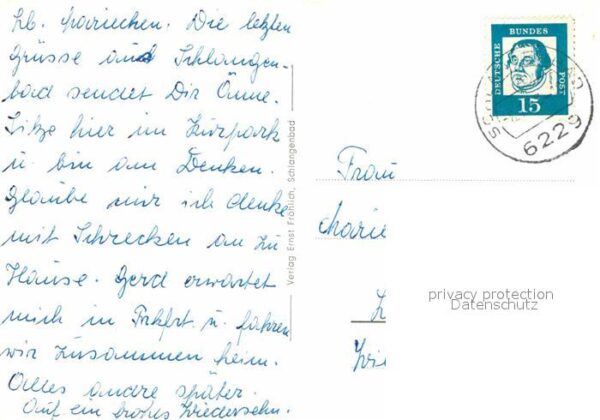 Lb. Mariechen. Die letzten
Grüsse aus Schlangen-
bad sendet Dir Änne.
Sitze hier im Kurpark
u. bin am Denken.
Glaube mir ich denke
mit Schrecken an zu
Hause. Gerd erwartet
mich in Frkfrt u. fahren
wir zusammen heim.
Alles andre später.
Auf ein frohes Wiedersehn.
Verlag Ernst Fröhlich, Schlangenbad
DEUTSCHE BUNDES POST
15
6229
Frau
Marie
privacy protection
Datenschutz